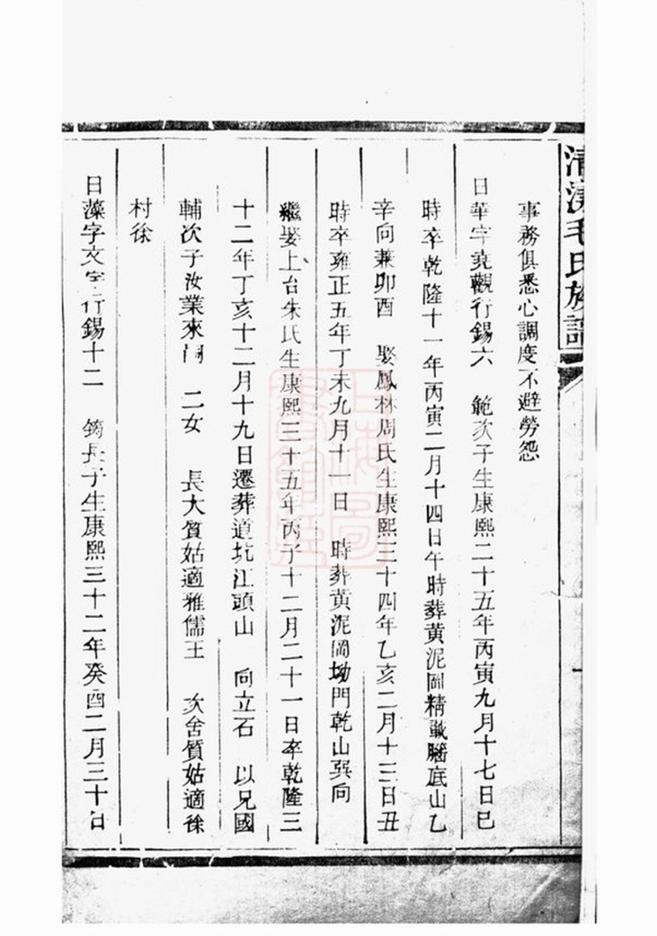 清漾毛氏族譜
事務俱悉心調度不避勞怨
日華字堯觀行錫六 範次子生康熙二十五年丙寅九月十七日巳
時卒乾隆十一年丙寅二月十四日午時葬黃泥岡精 腦底山乙
辛向兼卯酉 娶鳳林周氏生康熙三十四年乙亥二月十三日丑
時卒雍正五年丁未九月十一日 時葬黃泥岡坳門乾山巽向
繼娶上台朱氏生康熙三十五年丙子十二月二十一日卒乾隆三
十二年丁亥十二月十九日遷葬道坑江頭山 向立石 以兄國
輔次子汝業來嗣 二女 長大質姑適雅儒王 次舍質姑適徐
村徐
日藻字文 行錫十二 筠長子生康熙三十二年癸酉二月三十日